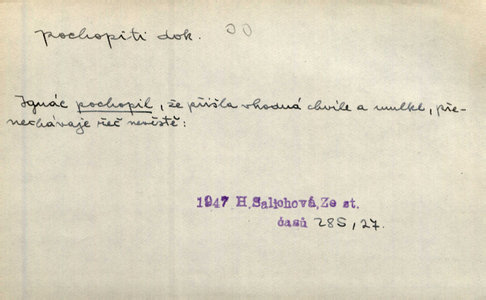 pochopiti dok.
Ignác pochopil, že přišla vhodná chvíle a umlkl, pře-
nechávaje řeč nevěstě:
1947 H.Salichová,Ze st.
časů 285, 27.